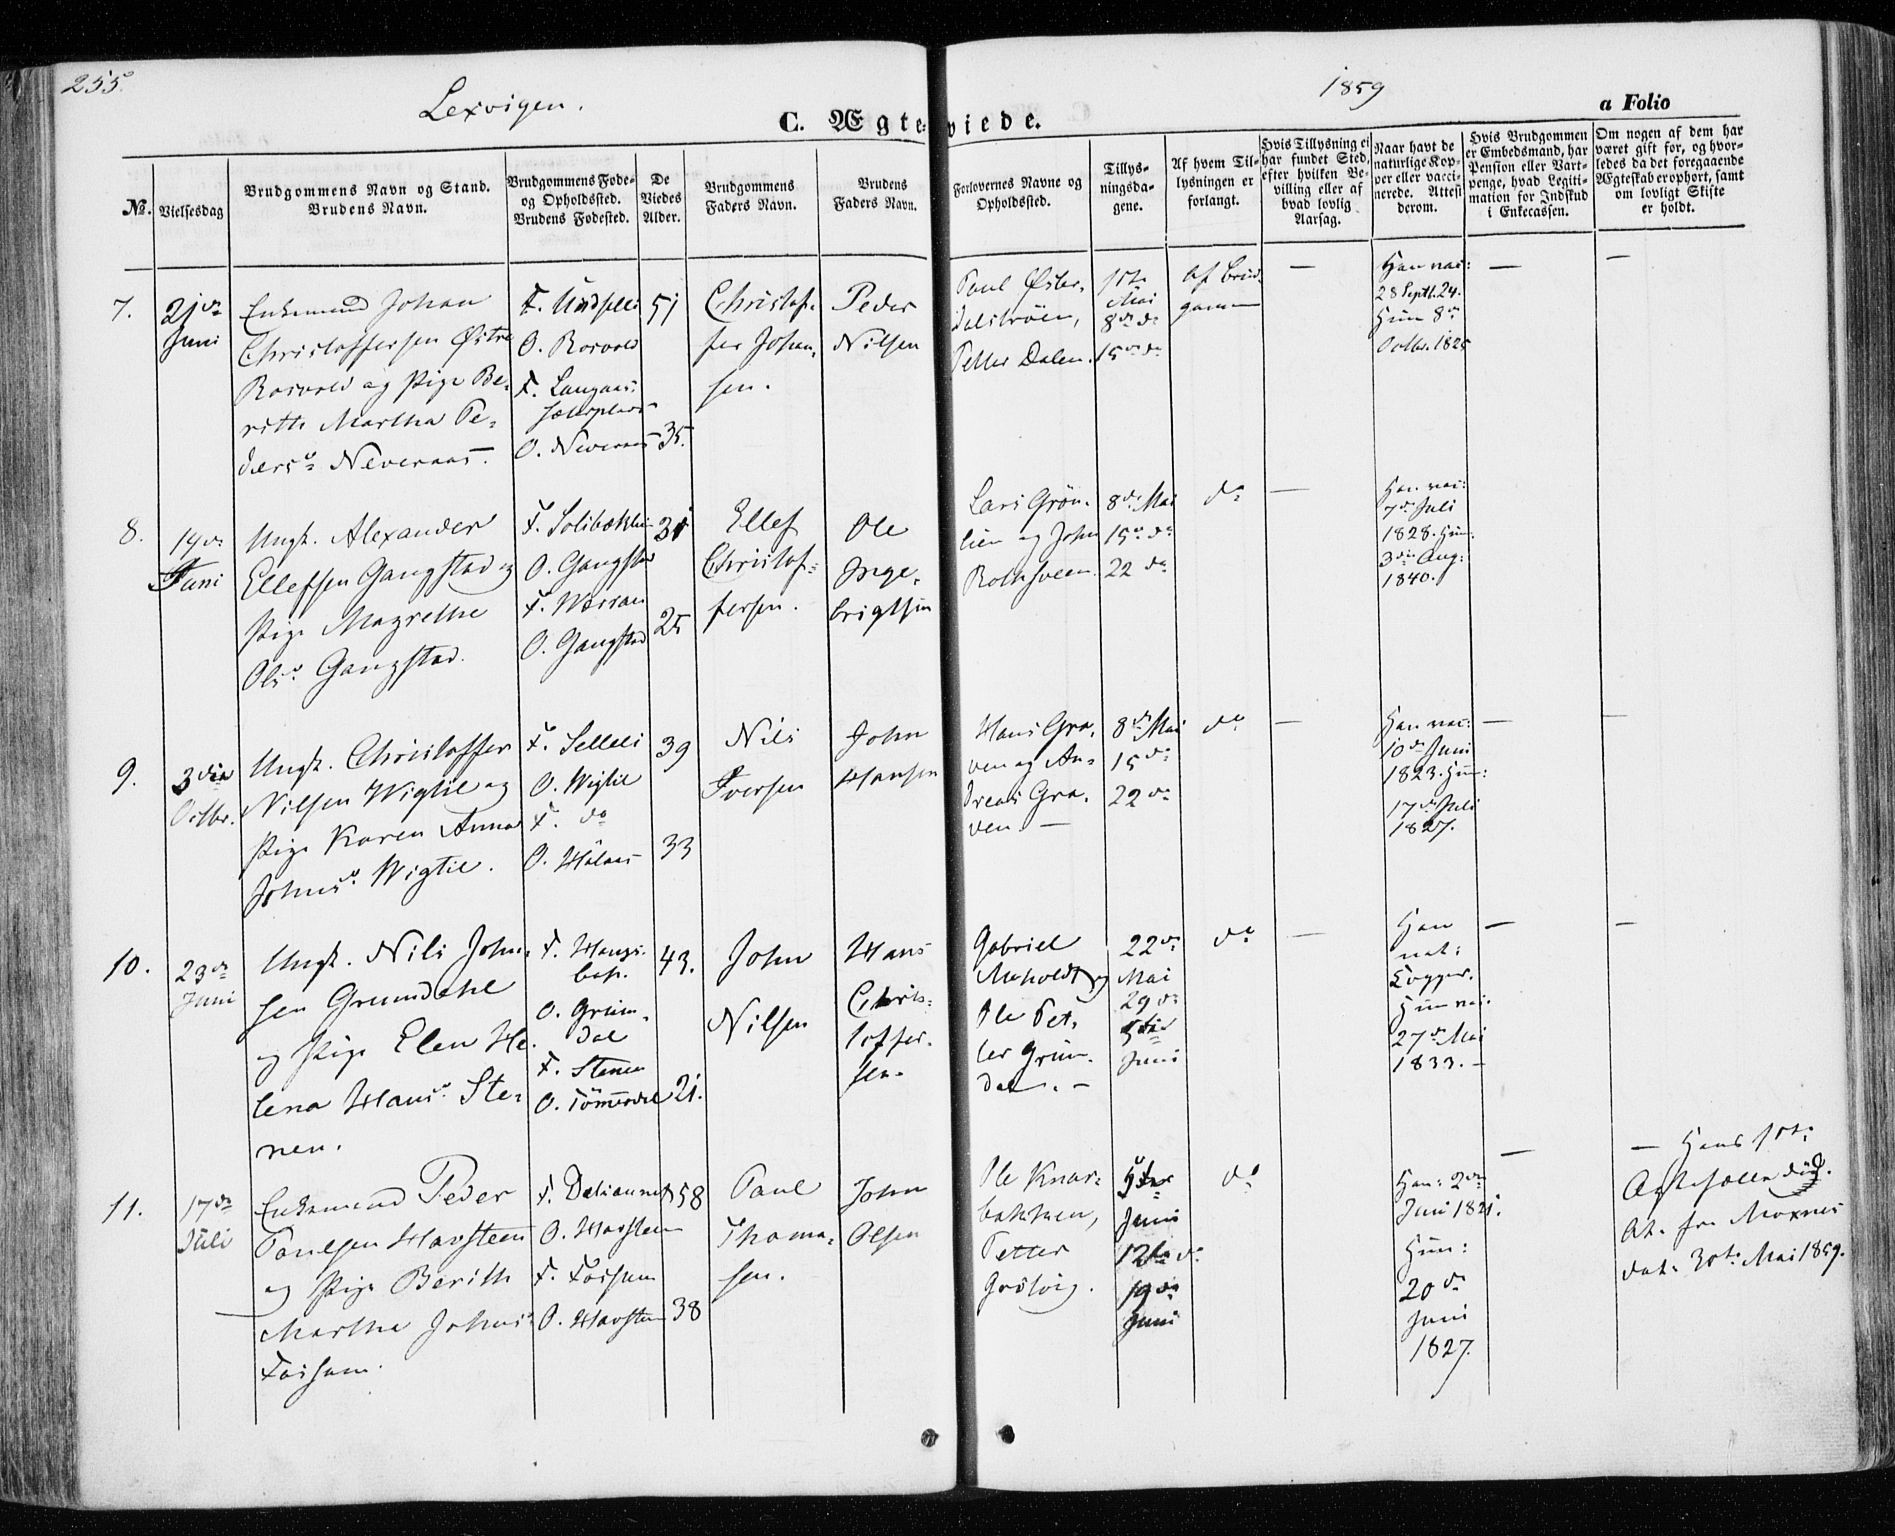 255.
Lexvigen.
1859
C. Ægteviede.
a Folio
No.
Vielsesdag
Brudgommens Navn og Stand.
Brudens Navn.
Brudgommens Føde-
og Opholdssted.
Brudens Fødested.
De
Viedes
Alder.
Brudgommens
Faders Navn.
Brudens
Faders Navn.
Forlovernes Navne og
Opholdssted.
Tillys-
ningsda-
gene.
Af hvem Til-
lysningen er
forlangt.
Hvis Tillysning ei
har fundet Sted,
efter hvilken Be-
villing eller af
hvad lovlig
Aarsag.
Naar havt de
naturlige Kop-
per eller vacci-
nerede. Attest
derom.
Hvis Brudgommen
er Embedsmand, har
Pension eller Vart-
penge, hvad Legiti-
mation for Indskud
i Enkecassen.
Om nogen af dem har
været gift før, og hvor-
ledes da det foregaaende
Ægteskab er ophørt, samt
om lovligt Skifte
er holdt.
7.
21de
Juni
Enkemand Johan
Christoffersen Østre
Rosvold og Pige Be-
rith Martha Pe-
dersd. Neveraas.
F.
O. Rosvold
F. Langaas-
O. Neveraas
51
35.
Christof-
fer Johan-
sen.
Peder
Nilsen
Paul Øster-
dalsbrøen,
Petter Dalen.
1ste
Mai
8de do
15de do
af Brud-
gommen
—
Han vac:
28 Septb. 24.
Hun 8de
Octbr. 1825
—
—
8.
14de
Juni
Ungk. Alexander
Ellefsen Gangstad og
Pige Magrethe
Olsd. Gangstad.
F. Solibakken
O. Gangstad
F. Werran
O. Gangstad
31
25
Ellef
Christof-
fersen.
Ole
Inge-
brigtsen
Lars Grøn-
lien og John
Rolksveen
8de Mai
15de do
22 do
do
—
Han vac:
7de Juli
1828. Hun:
3die Aug:
1840.
9.
3die
Octbr.
Ungk. Christoffer
Nilsen Wigtil og
Pige Karen Anna
Johnsd. Wigtil.
F. Selleli
O. Wigtil
F. do
O. Hølaas
39
33
Nils
Iversen
John
Hansen
Hans Gra-
ven og An-
dreas Gra-
ven. —
8de Mai
15de
22 do
do
—
Han vac:
10de Juni
1823. Hun:
17de Juli
1827.
—
—
10.
23de
Juni
Ungk. Nils John-
sen Grundahl
og Pige Elen He-
lena Hansd. Ste-
nen.
F. Haugs-
bak.
O. Grun-
dal
F. Stenen
O. Tømmerdal
43.
21.
John
Nilsen
Hans
Chris-
toffer-
sen.
Gabriel
Aaholdt og
Ole Pet-
ter Grun-
dal. —
22de
Mai
29de
5te
Juni
do
—
Han
nat:
Kopper.
Hun vac.
27de Mai
1833. —
—
—
11.
17de
Juli
Enkemand Peder
Paulsen Havsteen
og Pige Berith
Martha Johnsd.
Fossum.
F. Daliannet
O. Havsteen
F. Fossum
O. Havsteen
58
38
Paul
Thoma-
sen.
John
Olsen
Ole Knar-
bakken,
Petter
Grosvig.
5te
Juni
12te do
19de
Juni
do
Han: 2de
Juni 1821.
Hun:
20de
Juni
1827.
—
— Hans 1ste
Ægtefælle død.
At. fra Moxnes
dat. 30te Mai 1859.